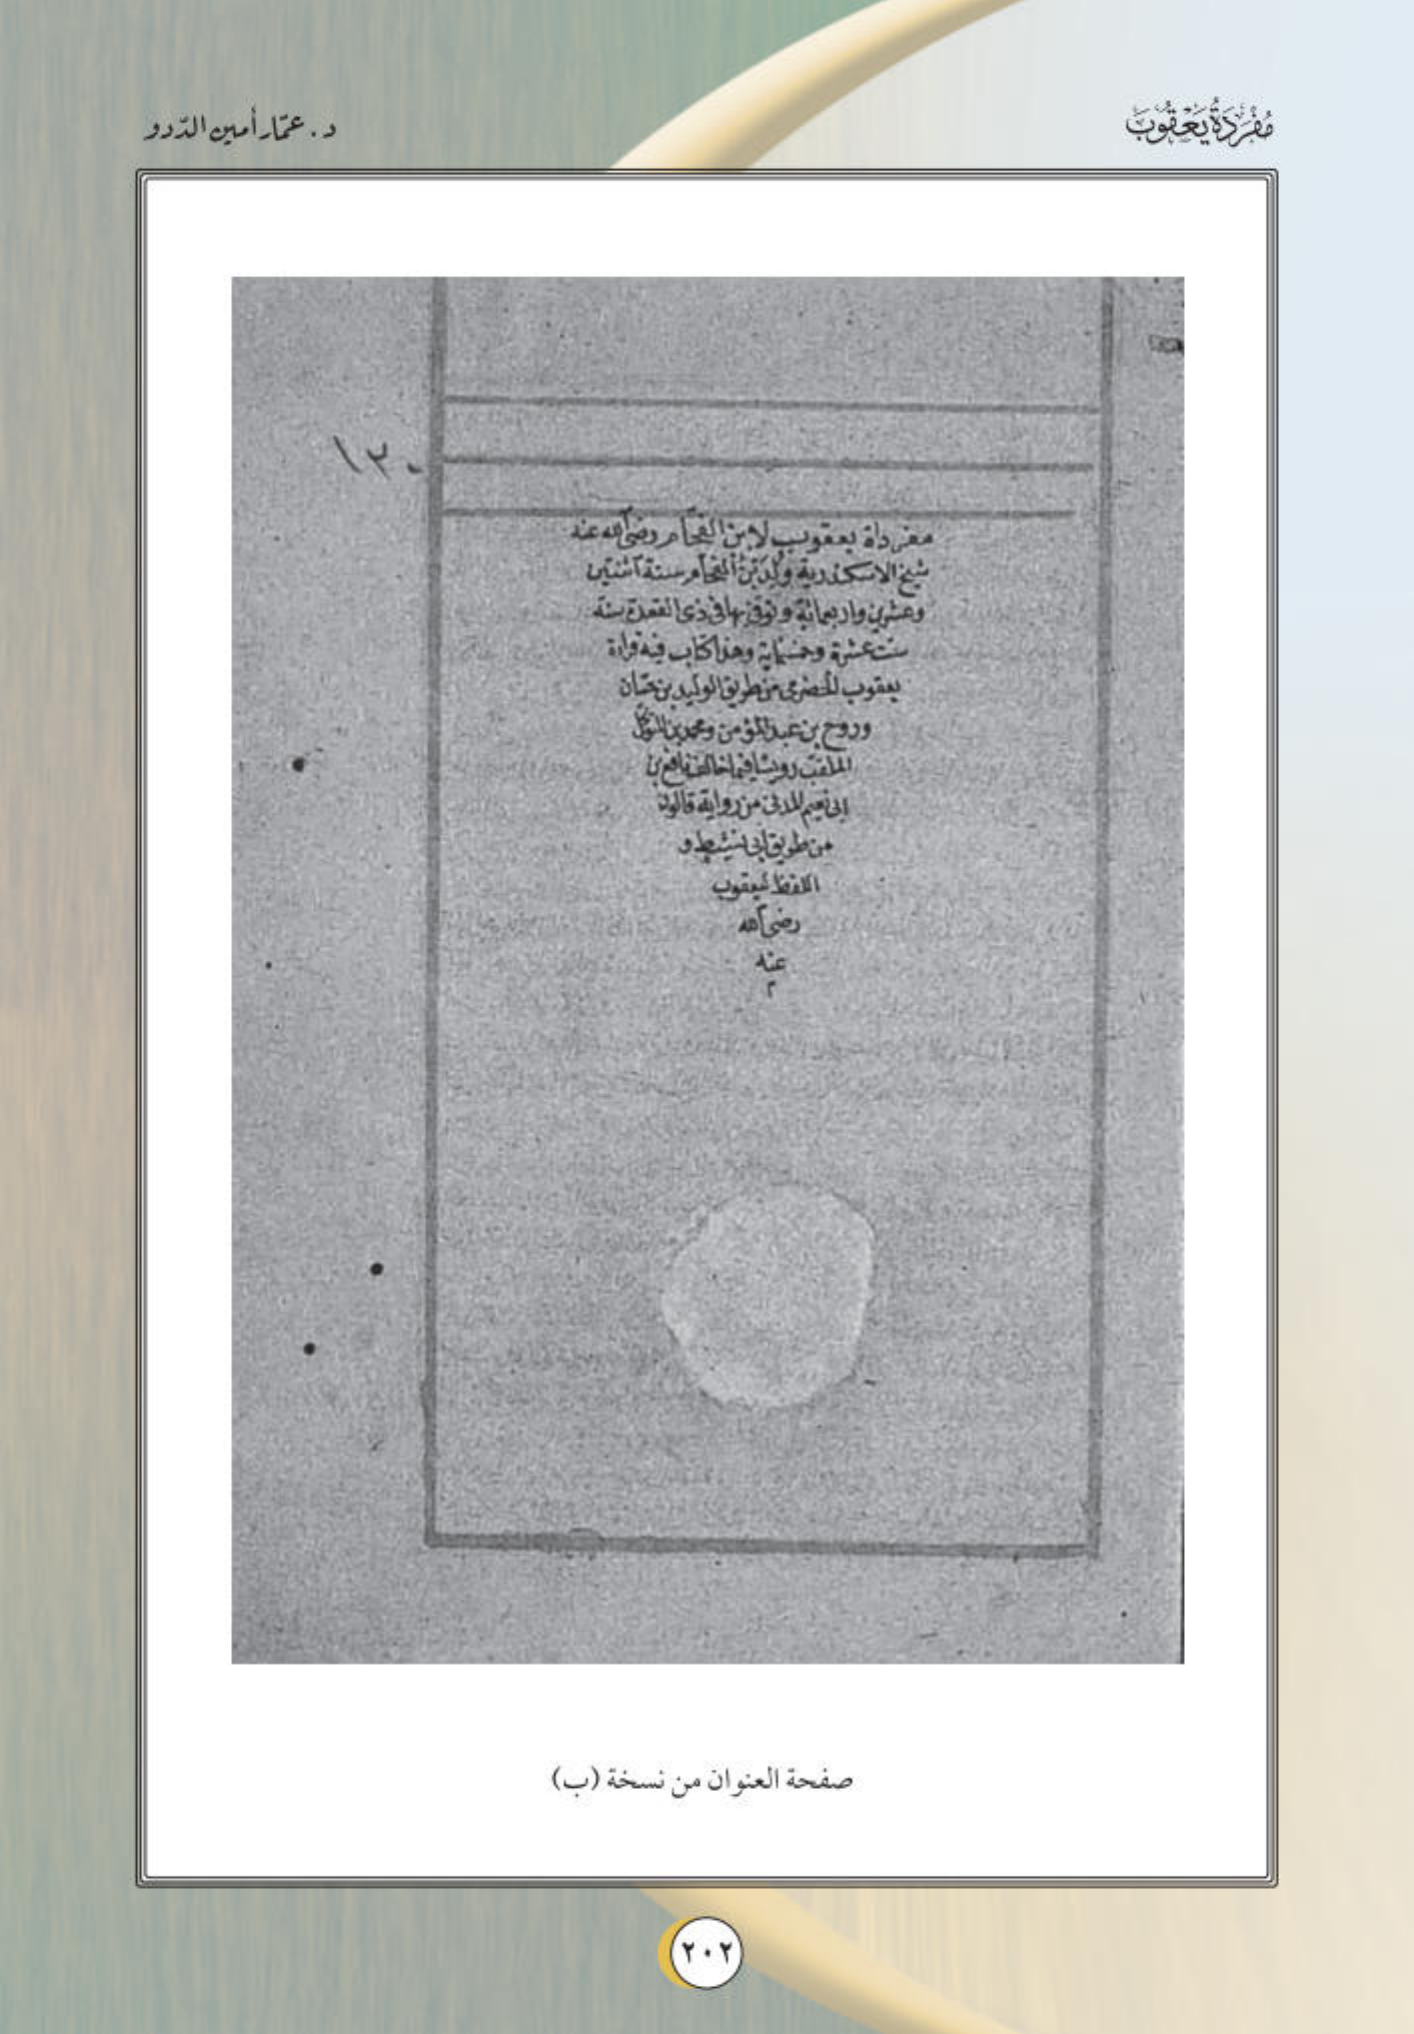 مُفْرَدَةُ يَعْقُوبَ
د. عمّار أمين الدّدو
١٣٠
مفرداة يعقوب لابن الفحام رضى الله عنه
شيخ الاسكندرية ولد بن الفحام سنة اثنتين
وعشرين واربعمائة وتوفى بها فى ذى القعدة سنه
ست عشرة وخمسماية وهذا كتاب فيه قراة
يعقوب الحضرمى من طريق الوليد بن حسان
وروح بن عبد المؤمن ومحمد بن المتوكل
الملقب رويسا فيما خالف نافع بن
ابى نعيم المدنى من رواية قالون
من طريق ابى نشيط و
اللفظ ليعقوب
رضى الله
عنه
م
صفحة العنوان من نسخة (ب)
٢٠٢